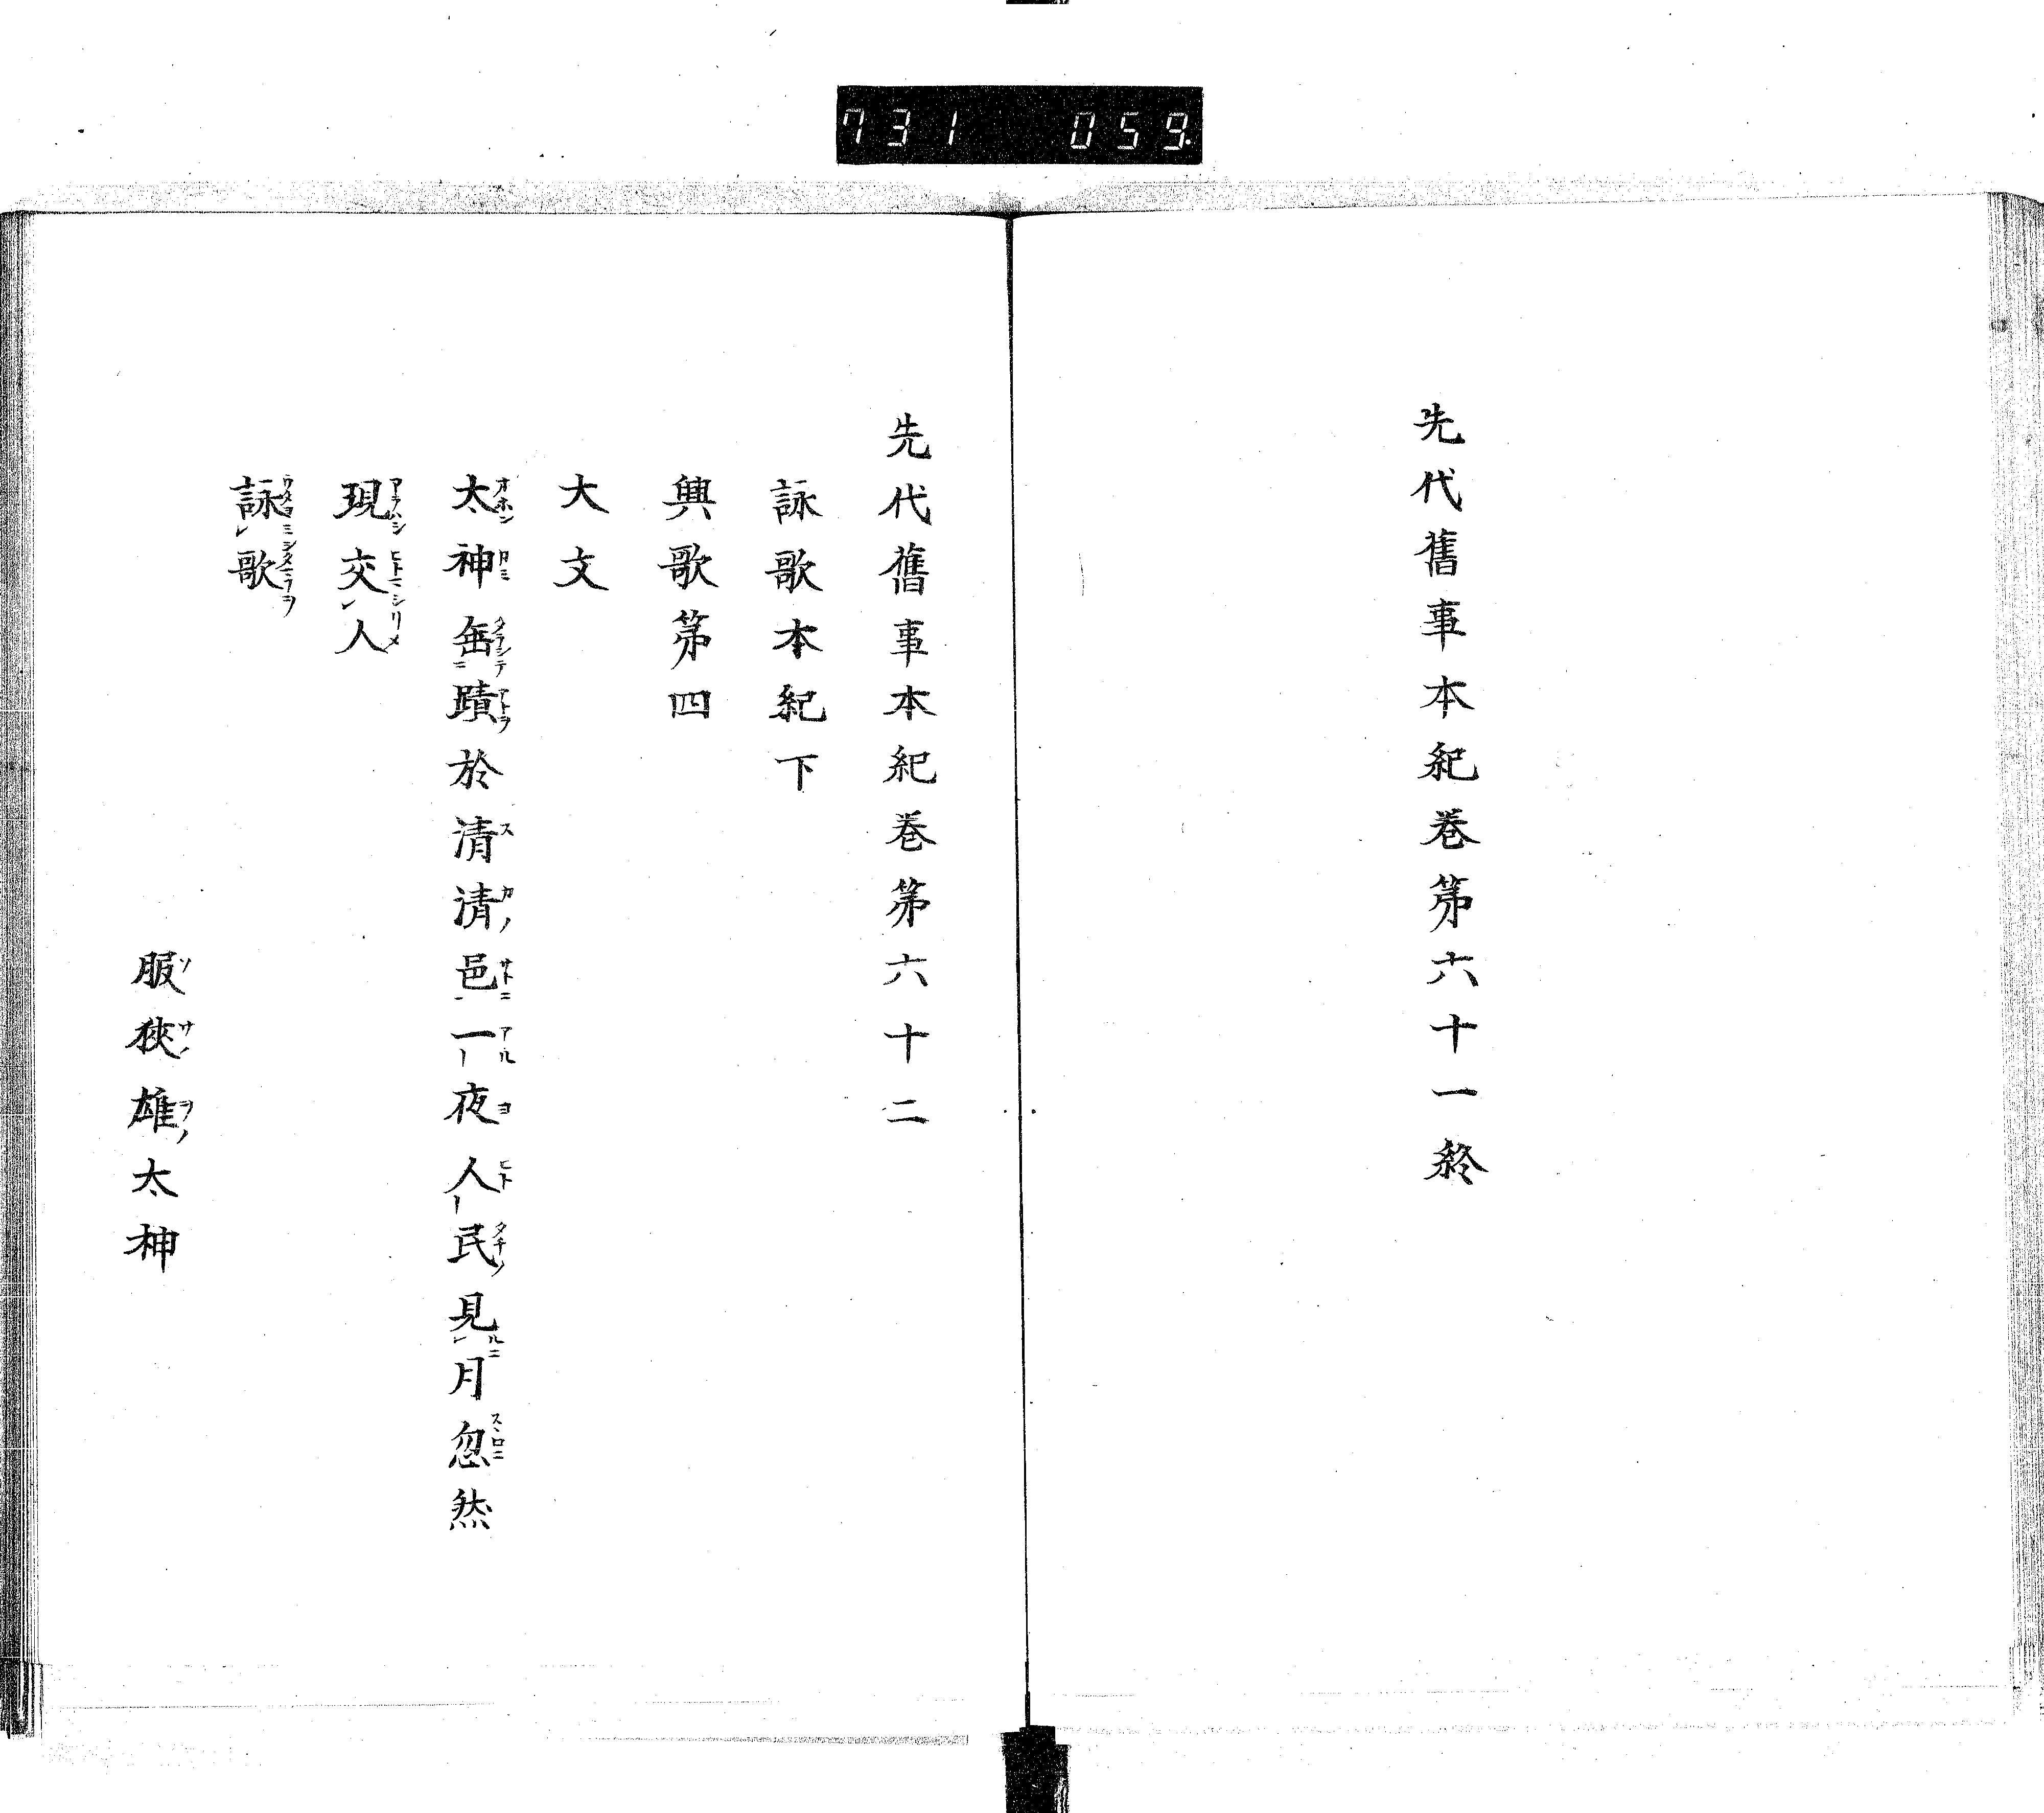 731 059
先代舊事本紀巻第六十一終
先代舊事本紀巻第六十二
詠歌本紀下
興歌第四
大文
太神缶蹟於清清邑一夜人民見月忽然
現交人
詠歌
服狹雄太神